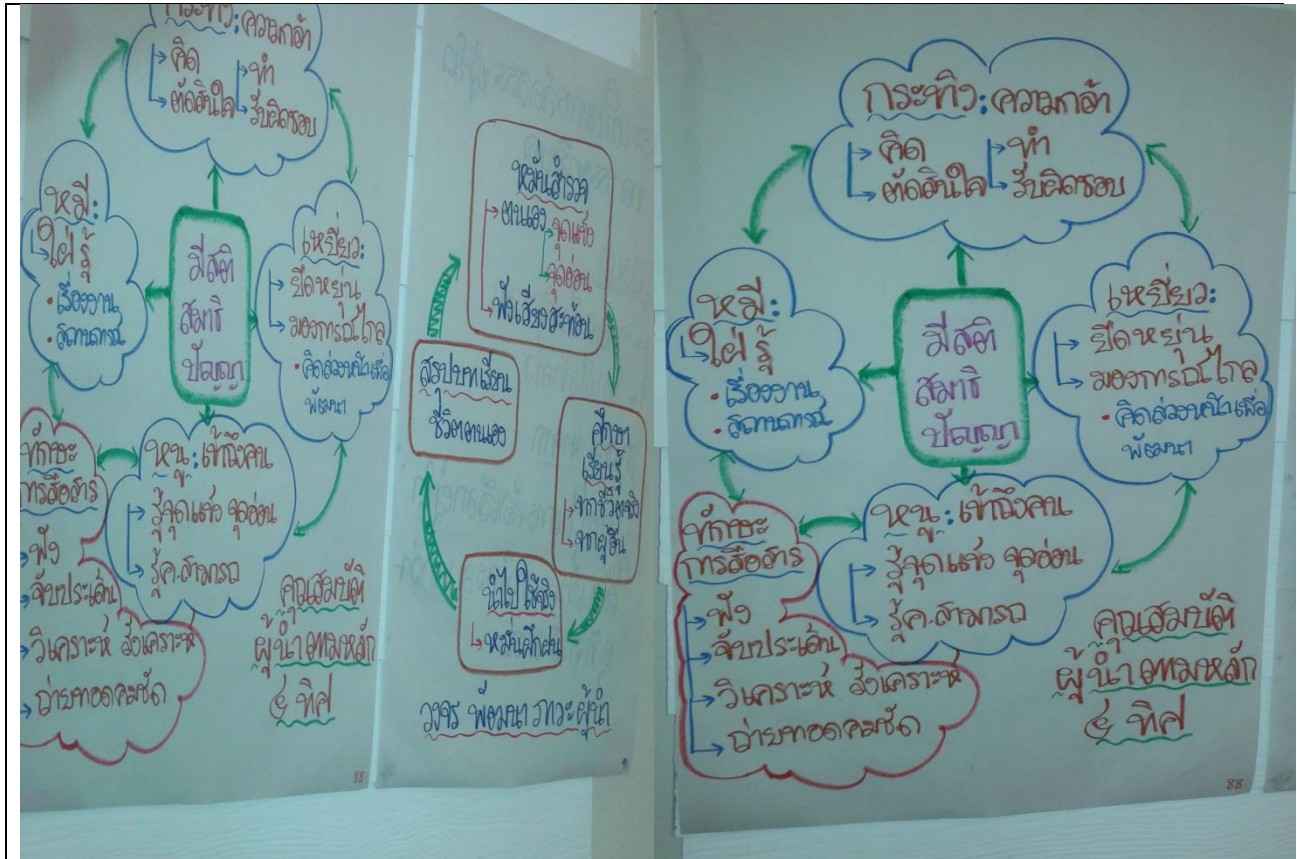 กระทิง: ความกล้า
คิด
ทำ
ตัดสินใจ
รับผิดชอบ
หมี:
ใฝ่รู้
• เรื่องงาน
• สถานการณ์
มีสติ
สมาธิ
ปัญญา
เหยี่ยว:
ยืดหยุ่น
มองการณ์ไกล
• คิดล่วงหน้าเพื่อ
พัฒนา
ทักษะ
การสื่อสาร
ฟัง
จับประเด็น
วิเคราะห์ สังเคราะห์
ถ่ายทอดคมชัด
หนู: เข้าถึงคน
รู้จุดแข็ง จุดอ่อน
รู้ค.สามารถ
คุณสมบัติ
ผู้นำตามหลัก
๔ ทิศ
88
หมั่นสำรวจ
ตนเอง
จุดแข็ง
จุดอ่อน
ฟังเสียงสะท้อน
สรุปบทเรียน
ชีวิตตนเอง
ศึกษา
เรียนรู้
จากชีวิตจริง
จากผู้อื่น
นำไปใช้จริง
หมั่นฝึกฝน
วงจร พัฒนา ภาวะผู้นำ
กระทิง: ความกล้า
คิด
ทำ
ตัดสินใจ
รับผิดชอบ
หมี:
ใฝ่รู้
• เรื่องงาน
• สถานการณ์
มีสติ
สมาธิ
ปัญญา
เหยี่ยว:
ยืดหยุ่น
มองการณ์ไกล
• คิดล่วงหน้าเพื่อ
พัฒนา
ทักษะ
การสื่อสาร
ฟัง
จับประเด็น
วิเคราะห์ สังเคราะห์
ถ่ายทอดคมชัด
หนู: เข้าถึงคน
รู้จุดแข็ง จุดอ่อน
รู้ค.สามารถ
คุณสมบัติ
ผู้นำตามหลัก
๔ ทิศ
88